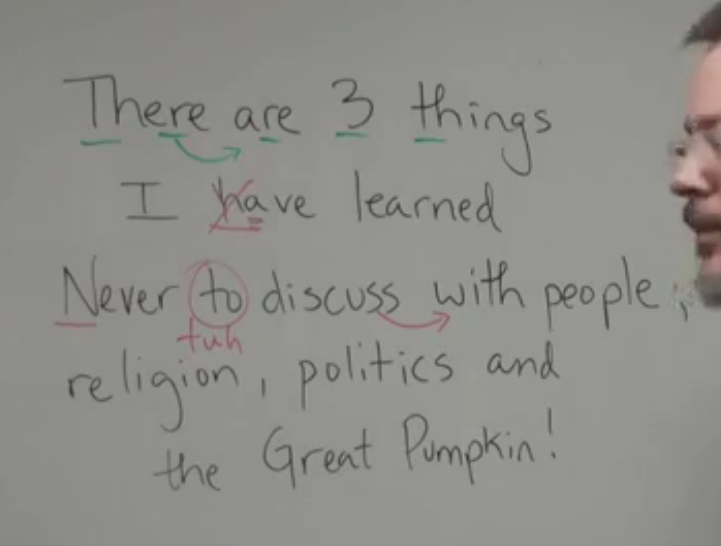 There are 3 things
I have learned
Never to discuss with people,
tuh
religion, politics and
the Great Pumpkin!